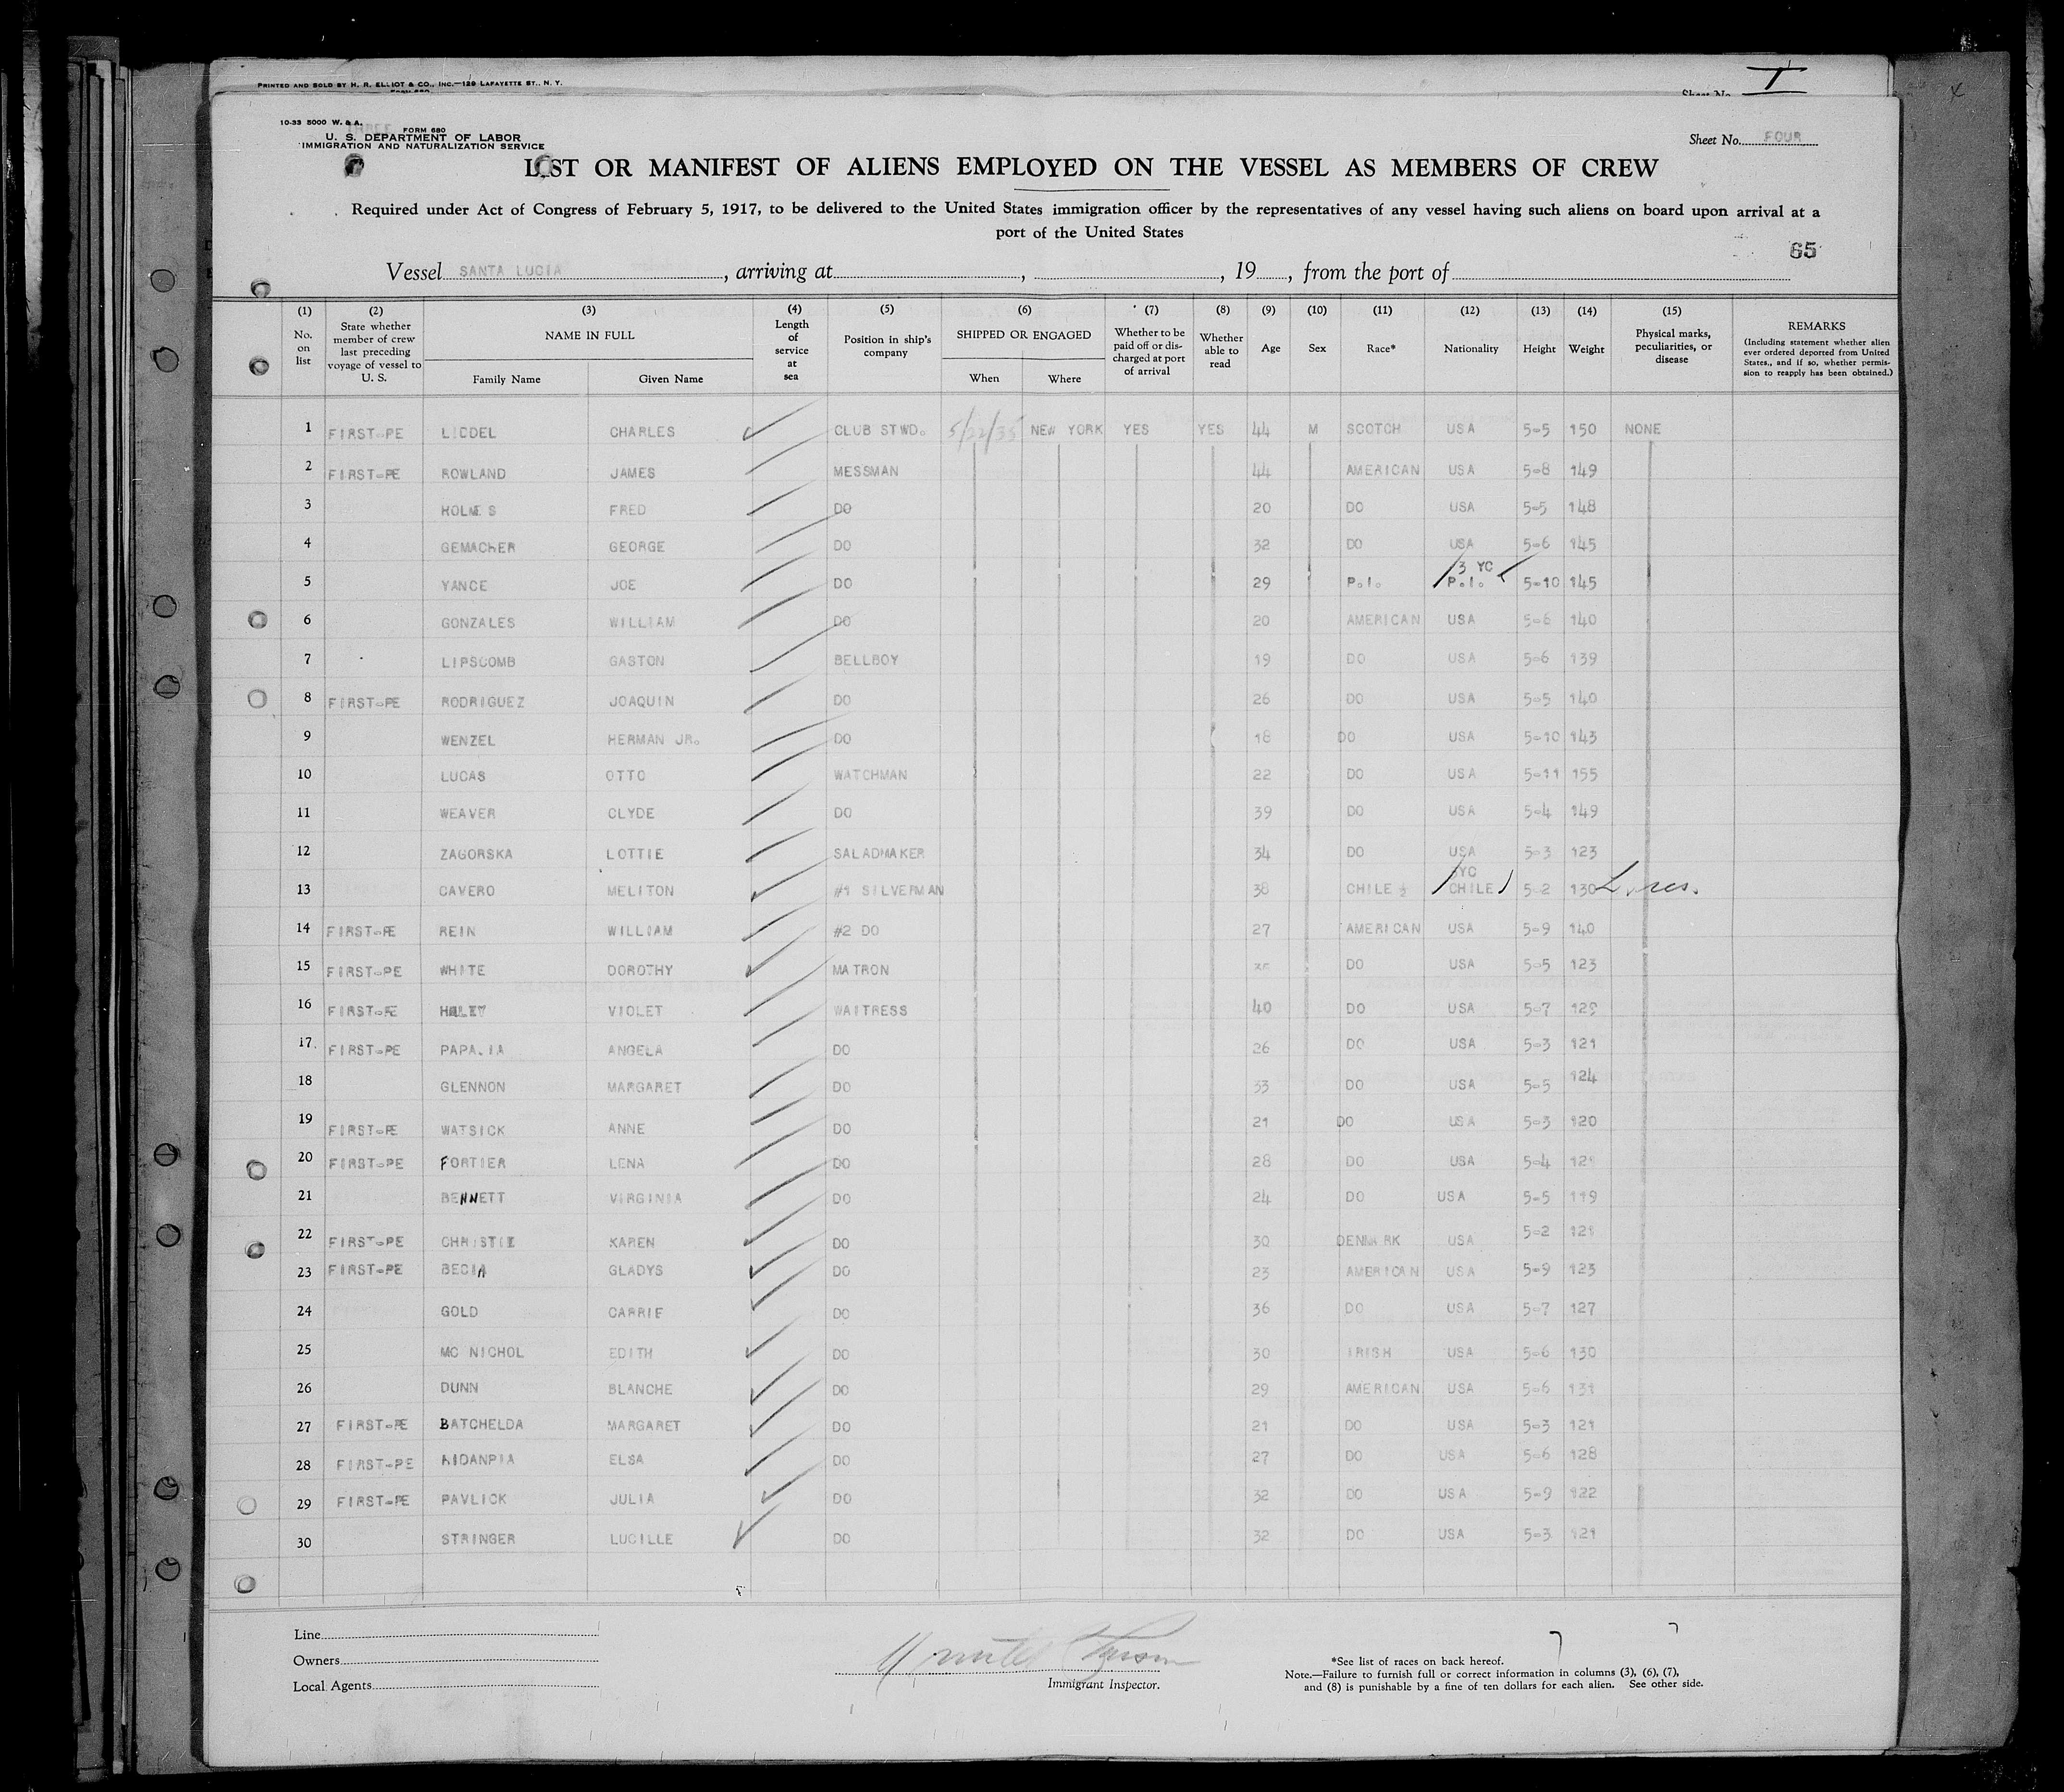 PRINTED AND SOLD BY H. R. ELLIOT & CO., INC.—129 LAFAYETTE ST., N. Y.
Sheet No. I
10-33 5000 W. & A.
FORM 680
U. S. DEPARTMENT OF LABOR
IMMIGRATION AND NATURALIZATION SERVICE
Sheet No. FOUR
LIST OR MANIFEST OF ALIENS EMPLOYED ON THE VESSEL AS MEMBERS OF CREW
Required under Act of Congress of February 5, 1917, to be delivered to the United States immigration officer by the representatives of any vessel having such aliens on board upon arrival at a
port of the United States
65
Vessel SANTA LUCIA, arriving at , , 19 , from the port of
(1) No. on list (2) State whether member of crew last preceding voyage of vessel to U. S. (3) NAME IN FULL Family Name Given Name (4) Length of service at sea (5) Position in ship's company (6) SHIPPED OR ENGAGED When Where (7) Whether to be paid off or discharged at port of arrival (8) Whether able to read (9) Age (10) Sex (11) Race* (12) Nationality (13) Height (14) Weight (15) Physical marks, peculiarities, or disease REMARKS (Including statement whether alien ever ordered deported from United States., and if so, whether permission to reapply has been obtained.)
1 FIRST-PE LIDDEL CHARLES CLUB STWD. 5/22/35 NEW YORK YES YES 44 M SCOTCH USA 5-5 150 NONE
2 FIRST-PE ROWLAND JAMES MESSMAN 44 AMERICAN USA 5-8 149
3 HOLMES FRED DO 20 DO USA 5-5 148
4 GEMACHER GEORGE DO 32 DO USA 5-6 145
3 YC
5 YANCE JOE DO 29 P.I. P.I. 5-10 145
6 GONZALES WILLIAM DO 20 AMERICAN USA 5-6 140
7 LIPSCOMB GASTON BELLBOY 19 DO USA 5-6 139
8 FIRST-PE RODRIGUEZ JOAQUIN DO 26 DO USA 5-5 140
9 WENZEL HERMAN JR. DO 18 DO USA 5-10 143
10 LUCAS OTTO WATCHMAN 22 DO USA 5-11 155
11 WEAVER CLYDE DO 39 DO USA 5-4 149
12 ZAGORSKA LOTTIE SALADMAKER 34 DO USA 5-3 123
YC
13 CAVERO MELITON #1 SILVERMAN 38 CHILE ½ CHILE 5 2 130 L. res.
14 FIRST-PE REIN WILLIAM #2 DO 27 AMERICAN USA 5-9 140
15 FIRST-PE WHITE DOROTHY MATRON DO USA 5-5 123
16 FIRST-PE HALEY VIOLET WAITRESS 40 DO USA 5-7 129
17 FIRST-PE PAPALIA ANGELA DO 26 DO USA 5-3 121
18 GLENNON MARGARET DO 33 DO USA 5-5 124
19 FIRST-PE WATSICK ANNE DO 21 DO USA 5-3 120
20 FIRST-PE FORTIER LENA DO 28 DO USA 5-4 121
21 BENNETT VIRGINIA DO 24 DO USA 5-5 119
22 FIRST-PE CHRISTIE KAREN DO 30 DENMARK USA 5-2 121
23 FIRST-PE BECIA GLADYS DO 23 AMERICAN USA 5-9 123
24 GOLD CARRIE DO 36 DO USA 5-7 127
25 MC NICHOL EDITH DO 30 IRISH USA 5-6 130
26 DUNN BLANCHE DO 29 AMERICAN USA 5-6 131
27 FIRST-PE BATCHELDA MARGARET DO 21 DO USA 5-3 121
28 FIRST-PE ELSA DO 27 DO USA 5-6 128
29 FIRST-PE PAVLICK JULIA DO 32 DO USA 5-9 122
30 STRINGER LUCILLE DO 32 DO USA 5-3 121
Line
Owners
Local Agents
Immigrant Inspector.
*See list of races on back hereof.
Note.—Failure to furnish full or correct information in columns (3), (6), (7),
and (8) is punishable by a fine of ten dollars for each alien. See other side.